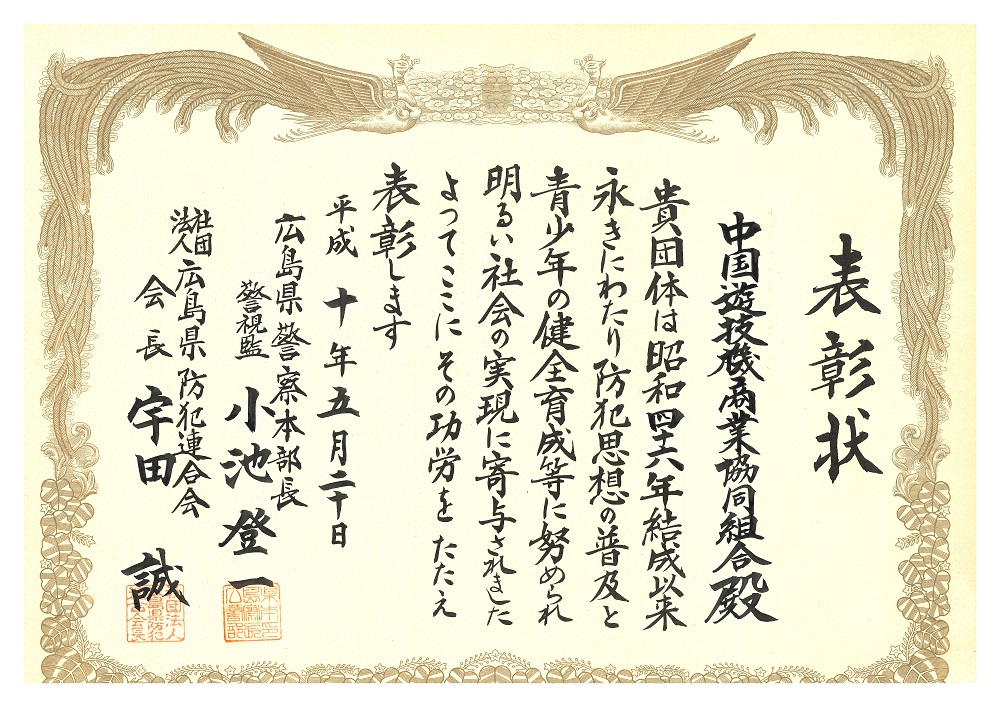 表彰状
中国遊技機商業協同組合殿
貴団体は昭和四十六年結成以来
永きにわたり防犯思想の普及と
青少年の健全育成等に努められ
明るい社会の実現に寄与されました
よってここにその功労をたたえ
表彰します
平成十年五月二十日
広島県警察本部長
警視監 小池登一
社団法人広島県防犯連合会
会長 宇田誠